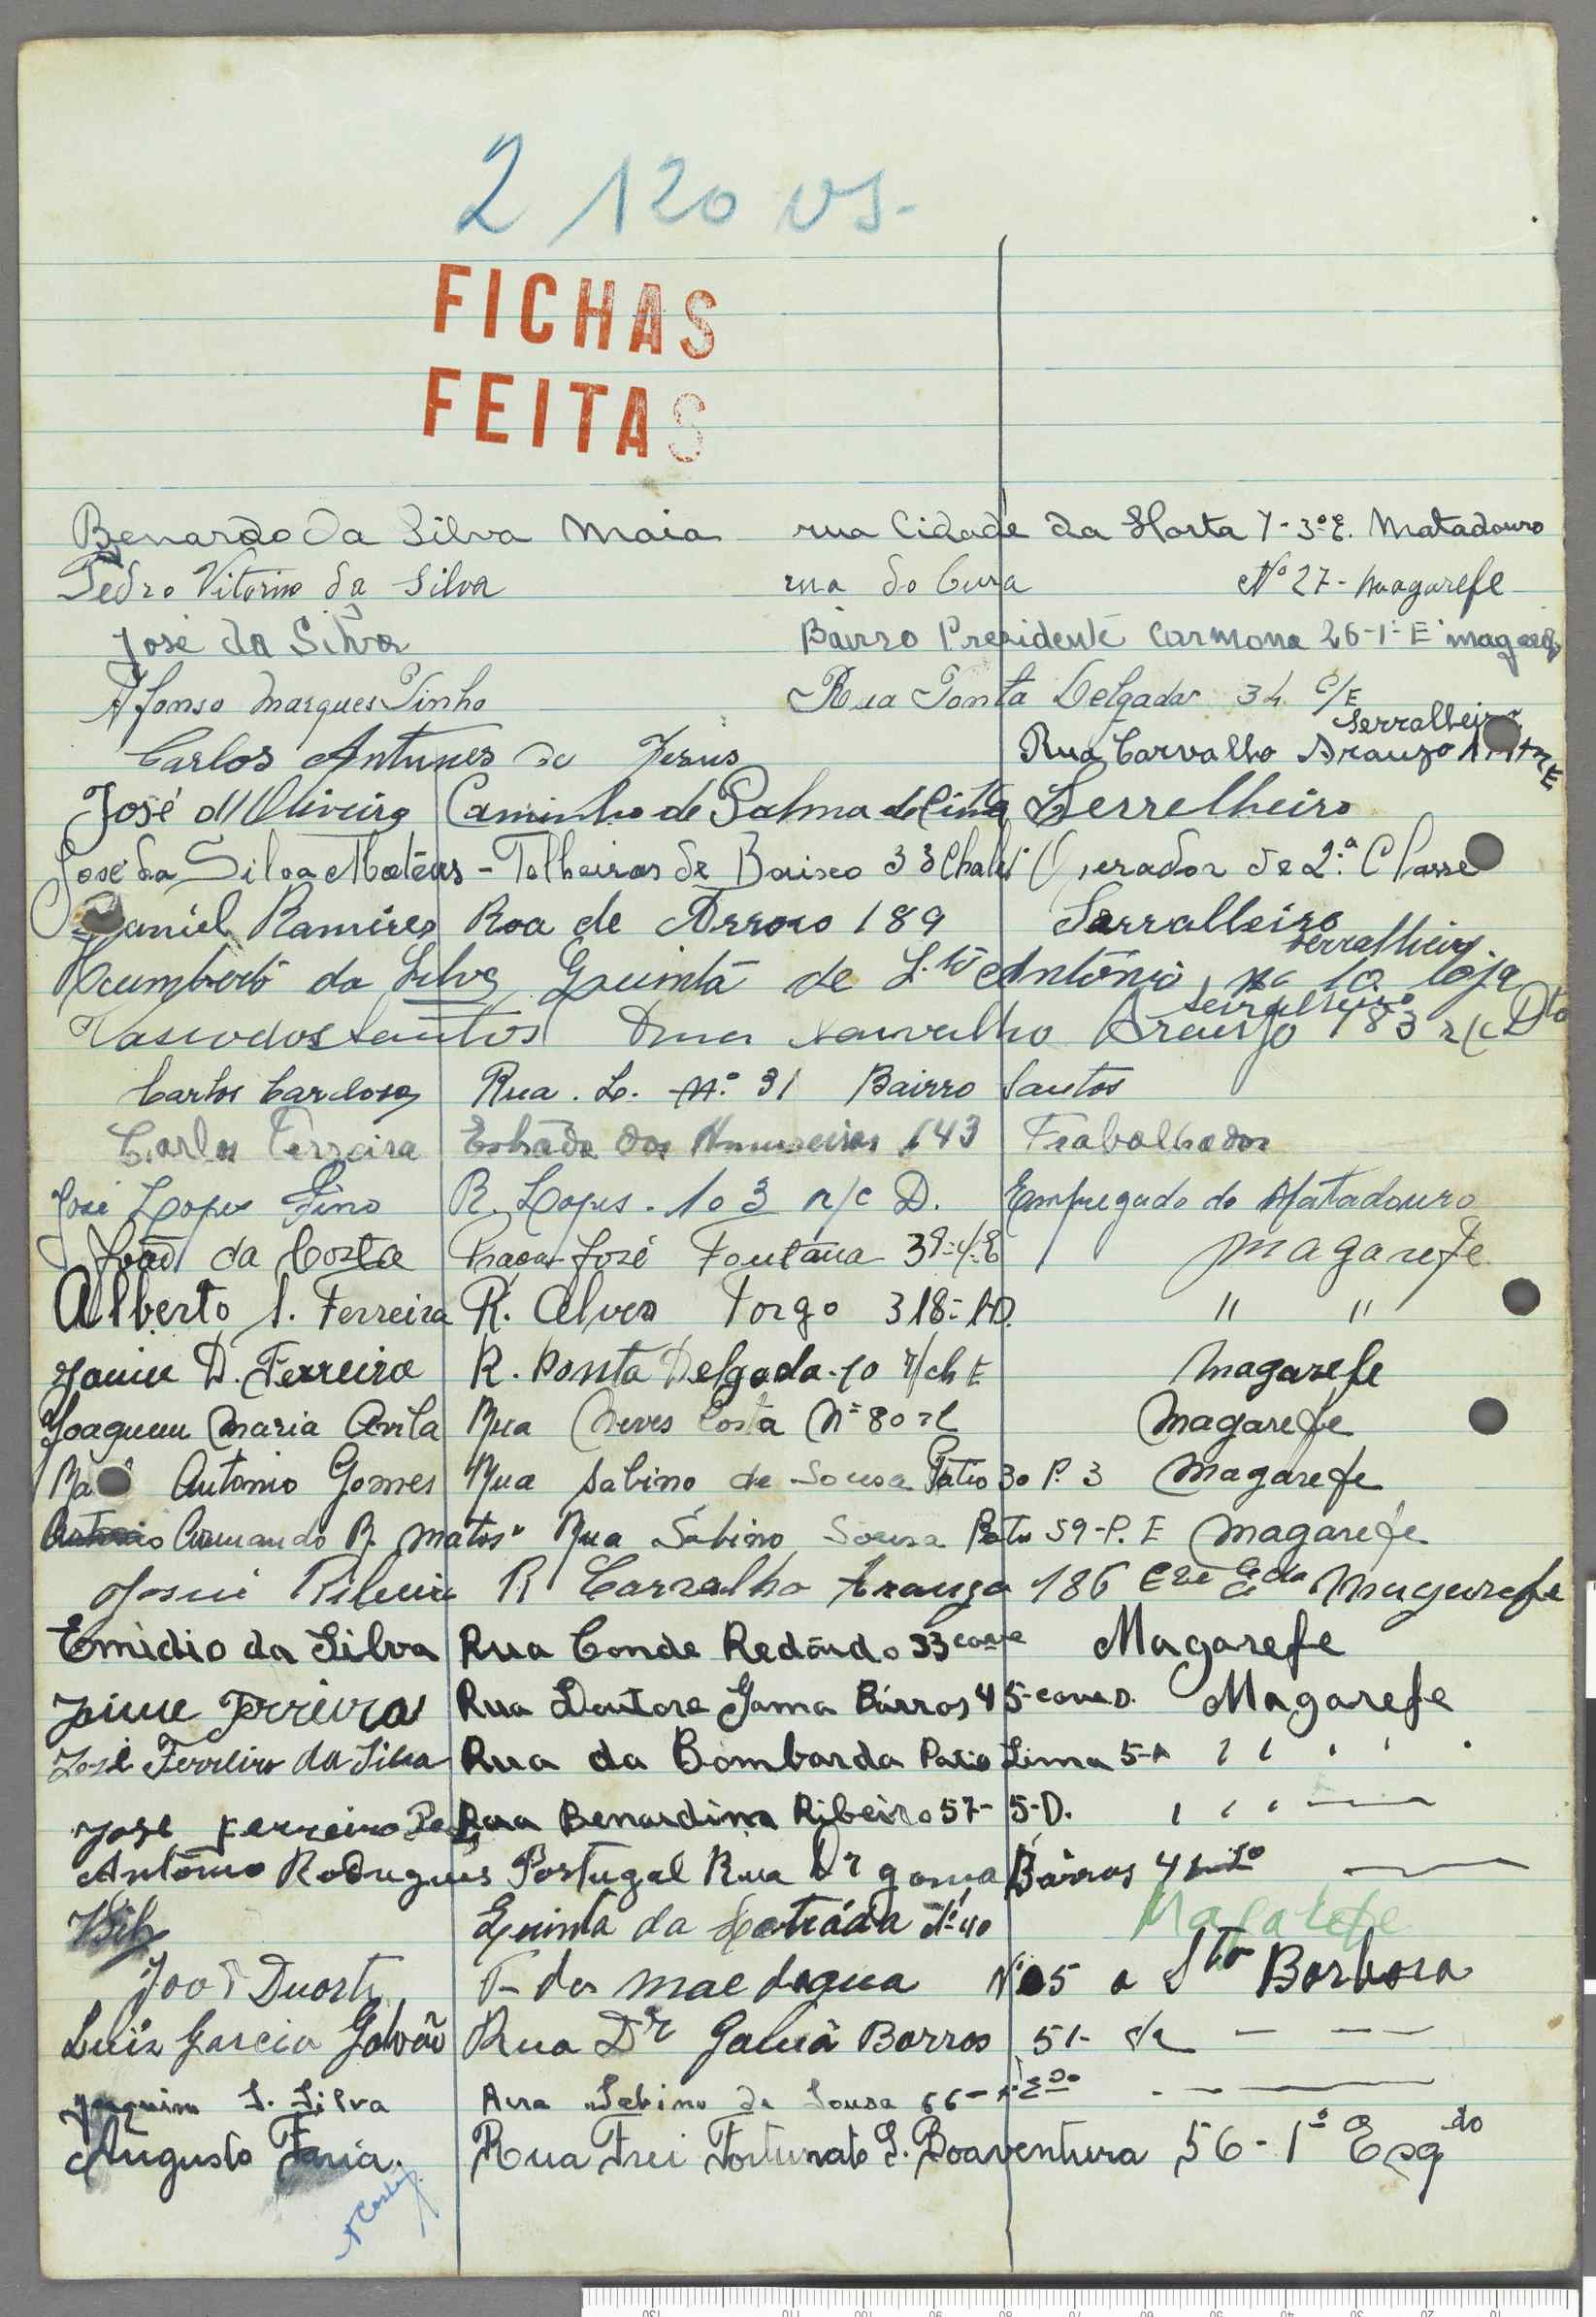 2 120 vs.
FICHAS
FEITAS
Benardo da Silva Maia rua Cidade da Horta 7-3º E. Matadouro
Pedro Vitorino da Silva rua do Cura Nº 27 - magarefe
José da Silva Bairro Prezidente Carmona 26-1º E magaref
Afonso Marques Pinho Rua Ponta Delgada 34 C/E
Serralheiro
Carlos Antunes de Jesus Rua Carvalho Araujo
José d'Oliveira Caminho de Palma de Cima Serrelheiro
José da Silva Matéus - Telheiras de Baixo 33 Chalet Operador de 2.ª Classe
Daniel Ramires Roa de Arroio 189 Serralleiro
serralheiro
Humberto da Silva Quinta de S.to António, nº 10 loja
serralheiro
Vasco dos Santos Rua Carvalho Araujo 183 r/c Dto
Carlos Cardoso Rua . L. Nº 31 Bairro Santos
Carlos Ferreira Estrada das Amureiras 143 Trabalhador
José Lopes Fino R. Lopes. 103 r/c D. Empregado do Matadouro
João da Costa Praça José Fontana 3º-4º E Magarefe
Alberto S. Ferreira R. Alves Torgo 318-1ºD. " "
Jaime D. Ferreira R. Ponta Delgada-10 r/ch E Magarefe
Joaquim Maria Avila Rua Neves Costa Nº 80 rc Magarefe
Antonio Gomes Rua Sabino de Sousa Patio 30 P. 3 Magarefe
Armando R. Matos Rua Sabino Sousa Patio 59-P. E Magarefe
Josué Ribeiro R Carvalho Araujo 186 Magarefe
Emidio da Silva Rua Conde Redondo 33 cave Magarefe
Jaime Ferreira Rua Doutore Gama Bárros 45-cave D. Magarefe
José Ferreira da Silva Rua da Bombarda Patio Lima 5-A
José Ferreira Rua Benardina Ribeiro 57- 5-D.
António Rodrigues Portugal Rua Dr gama Bárros
Quinta da Nº 40 Magarefe
João Duarte T- da mae dagua Nº 5 a Sta Barbara
Luiz Garcia Galvão Rua Dr Gama Barros 51-
Joaquim S. Silva Rua Sabino de Sousa 66-
Augusto Faria. Rua Frei Fortunato S. Boaventura 56-1º Esqdo